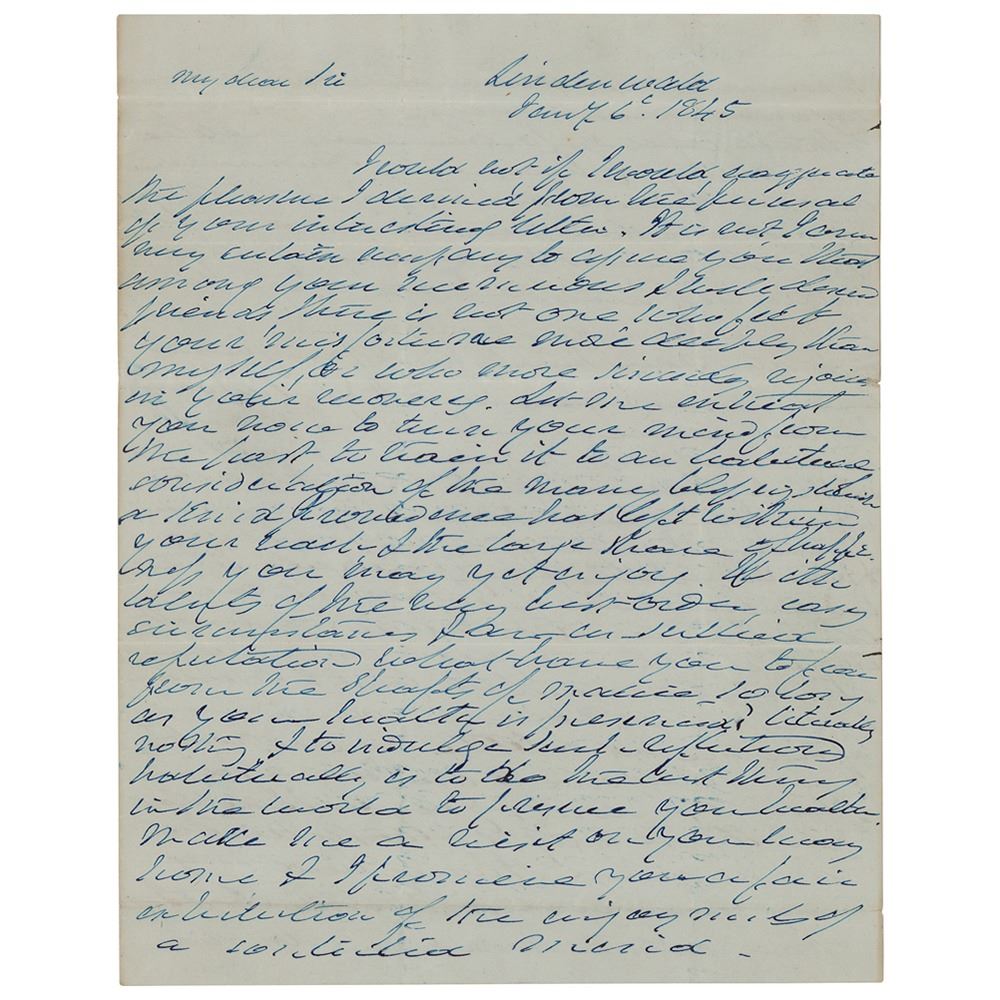 My dear Sir Lindenwald
Jany 6t. 1845
I could not if I would, exaggerate
the pleasure I derived from the perusal
of your interesting letter. It is not I
my necessary to assure you that
among your numerous & well deserved
friends there is not one who felt
your misfortune more deeply than
myself, or who more sincerely rejoices
in your recovery. Let me entreat
you now to turn your mind from
the past to train it to an habitual
consideration of the many blessings which
a kind providence has left within
your reach & the large share of happi-
ness you may yet enjoy. With
talents of the very first order, easy
circumstances, & a well settled
reputation what have you to fear
from the shafts of malice so long
as your health is preserved? literally
nothing & to indulge such reflections
habitually is to do the best thing
in the world to preserve your health.
Make me a visit on your way
home & I promise you a fair
exhibition of the enjoyments of
a contented mind.